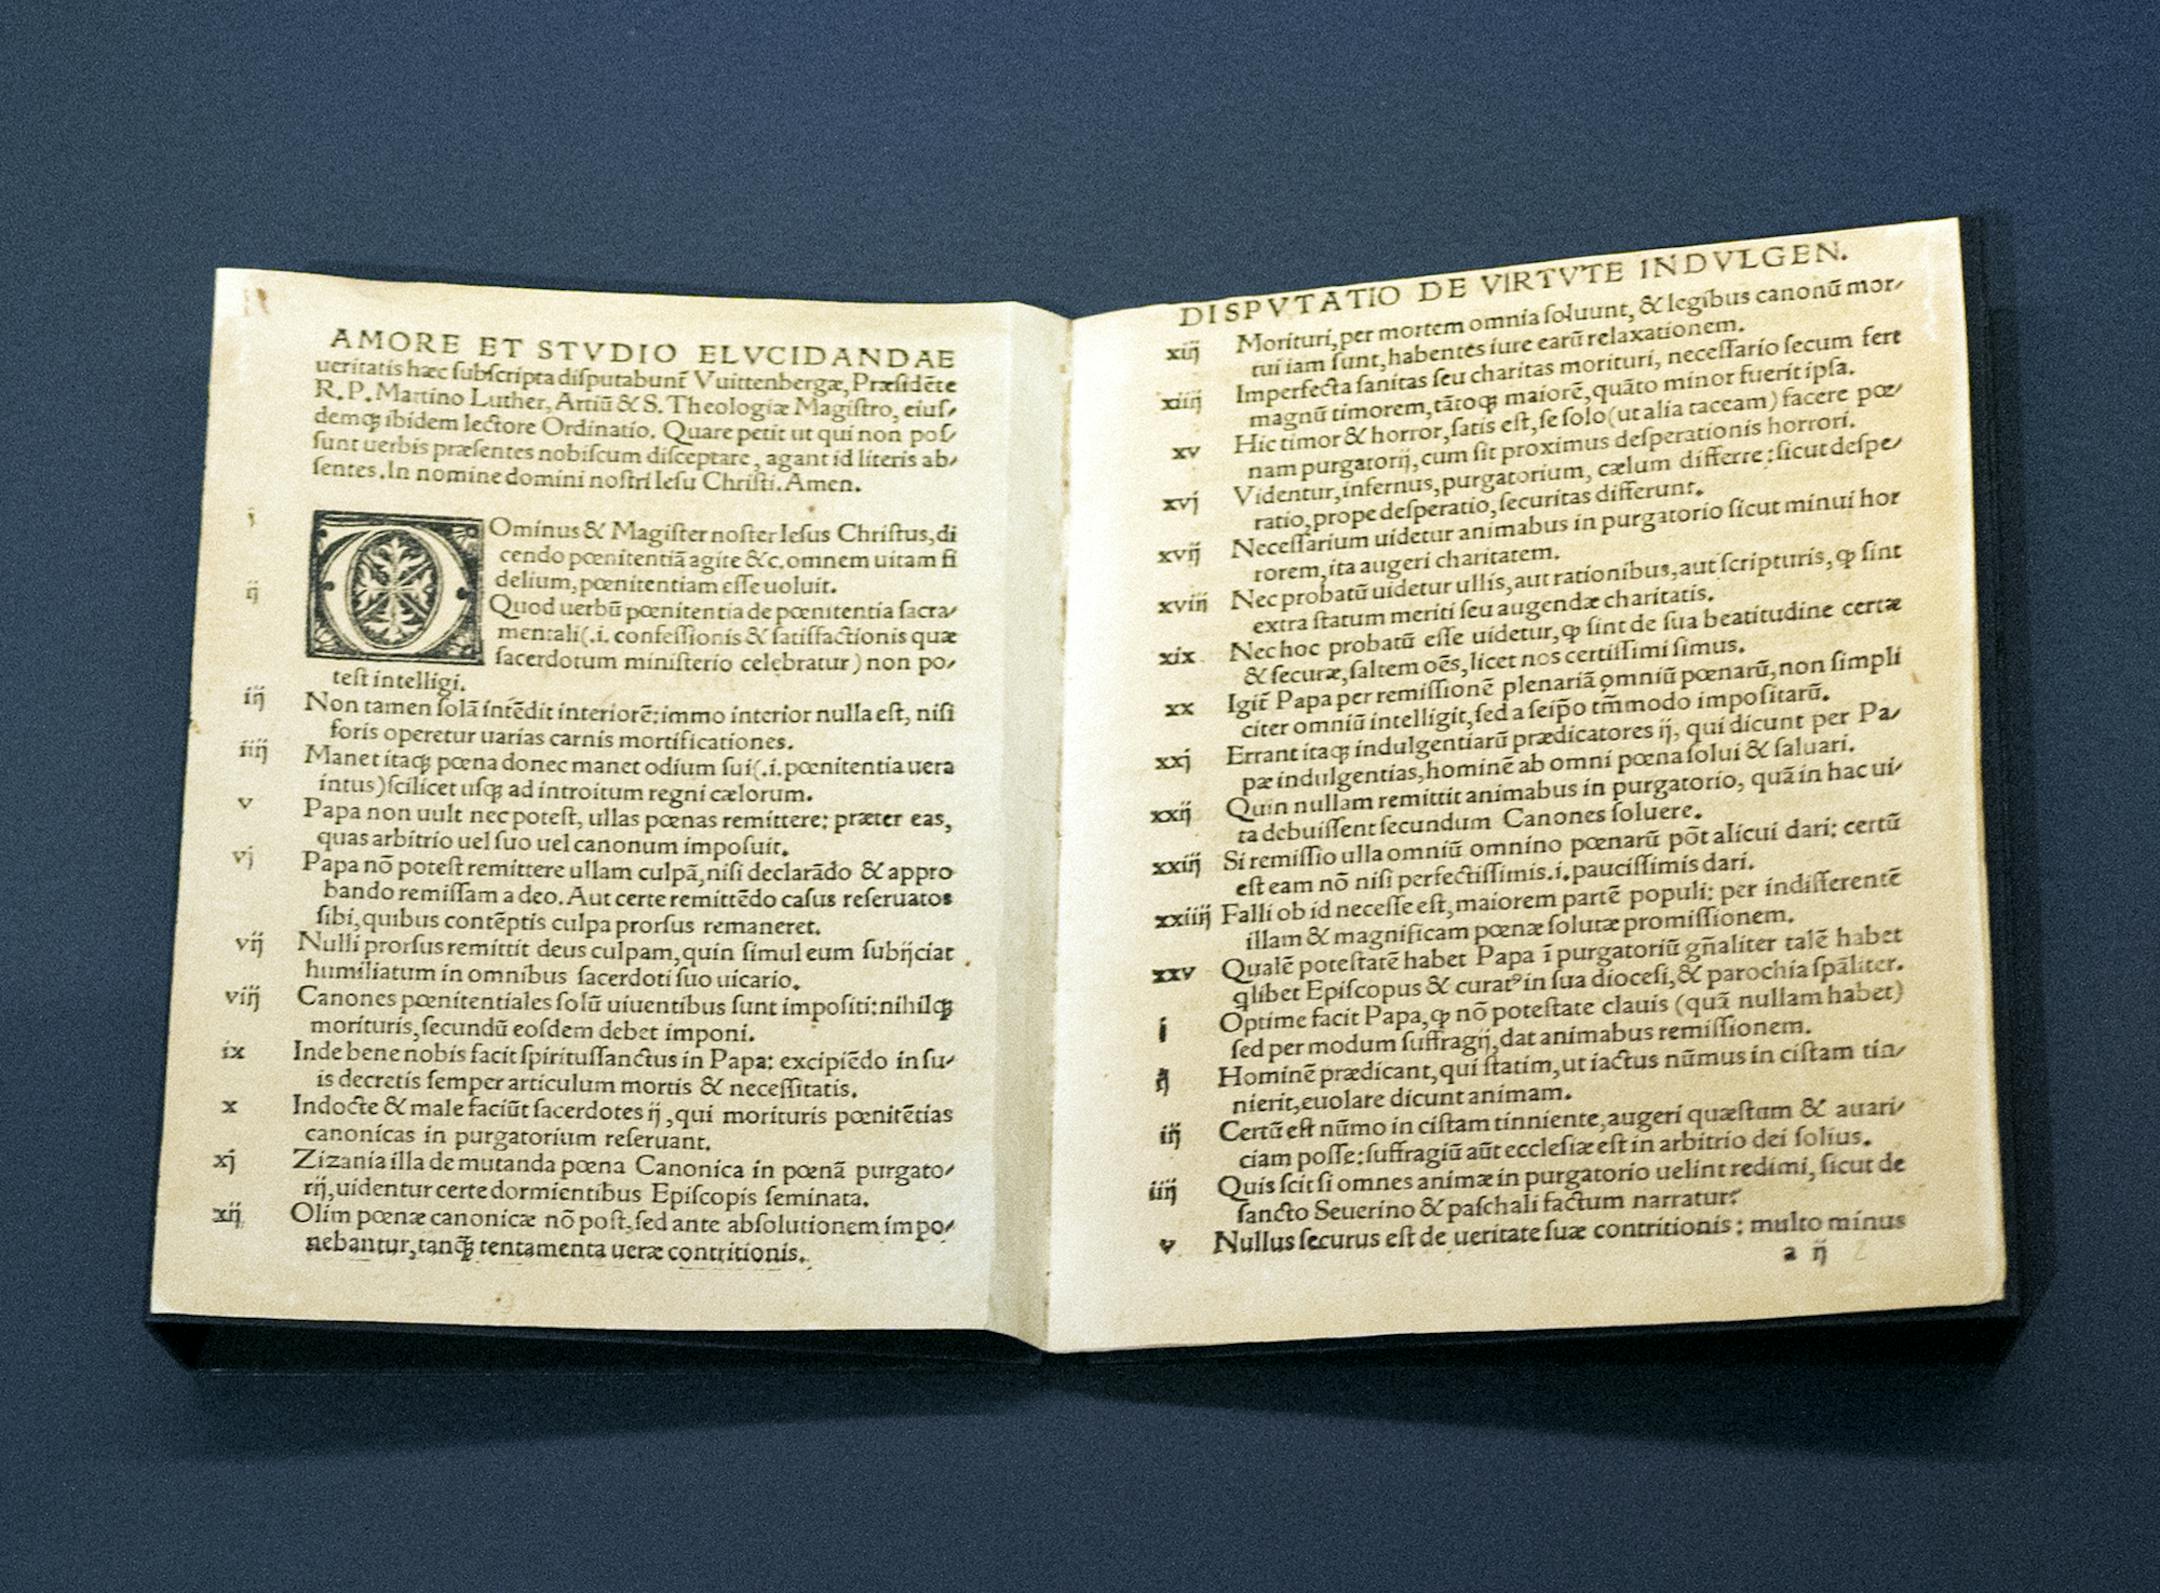 AMORE ET STVDIO ELVCIDANDAE
ueritatis hæc subscripta disputabunt̃ Vuittenbergæ, Præsidẽte
R. P. Martino Luther, Artiũ & S. Theologiæ Magistro, eius/
demqꝫ ibidem lectore Ordinatio. Quare petit ut qui non pos/
sunt uerbis præsentes nobiscum disceptare, agant id literis ab/
sentes. In nomine domini nostri Iesu Christi. Amen.
i OOminus & Magister noster Iesus Christus, di
cendo pœnitentiã agite &c. omnem uitam fi
delium, pœnitentiam esse uoluit.
ij Quod uerbũ pœnitentia de pœnitentia sacra/
mentali (.i. confessionis & satisfactionis quæ
sacerdotum ministerio celebratur) non po/
test intelligi.
iij Non tamen solã intẽdit interiorẽ: immo interior nulla est, nisi
foris operetur uarias carnis mortificationes.
iiij Manet itaqꝫ pœna donec manet odium sui (.i. pœnitentia uera
intus) scilicet usqꝫ ad introitum regni cælorum.
v Papa non uult nec potest, ullas pœnas remittere: præter eas,
quas arbitrio uel suo uel canonum imposuit.
vj Papa nõ potest remittere ullam culpã, nisi declarãdo & appro
bando remissam a deo. Aut certe remittẽdo casus reseruatos
sibi, quibus contẽptis culpa prorsus remaneret.
vij Nulli prorsus remittit deus culpam, quin simul eum subijciat
humiliatum in omnibus sacerdoti suo uicario.
viij Canones pœnitentiales solũ uiuentibus sunt impositi: nihilqꝫ
morituris, secundũ eosdem debet imponi.
ix Inde bene nobis facit spiritussanctus in Papa: excipiẽdo in su/
is decretis semper articulum mortis & necessitatis.
x Indocte & male faciũt sacerdotes ij, qui morituris pœnitẽtias
canonicas in purgatorium reseruant.
xj Zizania illa de mutanda pœna Canonica in pœnã purgato/
rij, uidentur certe dormientibus Episcopis seminata.
xij Olim pœnæ canonicæ nõ post, sed ante absolutionem impo/
nebantur, tanqꝫ̃ tentamenta ueræ contritionis.
DISPVTATIO DE VIRTVTE INDVLGEN.
xiij Morituri, per mortem omnia soluunt, & legibus canonũ mor/
tui iam sunt, habentes iure earũ relaxationem.
xiiij Imperfecta sanitas seu charitas morituri, necessario secum fert
magnũ timorem, tãtoqꝫ maiorẽ, quãto minor fuerit ipsa.
xv Hic timor & horror, satis est, se solo (ut alia taceam) facere pœ/
nam purgatorij, cum sit proximus desperationis horrori.
xvj Videntur, infernus, purgatorium, cælum differre: sicut despe/
ratio, prope desperatio, securitas differunt.
xvij Necessarium uidetur animabus in purgatorio sicut minui hor
rorem, ita augeri charitatem.
xviij Nec probatũ uidetur ullis, aut rationibus, aut scripturis, ꝙ sint
extra statum meriti seu augendæ charitatis.
xix Nec hoc probatũ esse uidetur, ꝙ sint de sua beatitudine certæ
& securæ, saltem oẽs, licet nos certissimi simus.
xx Igit̃ Papa per remissionẽ plenariã omniũ pœnarũ, non simpli
citer omniũ intelligit, sed a seip̃o tm̃modo impositarũ.
xxj Errant itaqꝫ indulgentiarũ prædicatores ij, qui dicunt per Pa/
pæ indulgentias, hominẽ ab omni pœna solui & saluari.
xxij Quin nullam remittit animabus in purgatorio, quã in hac ui/
ta debuissent secundum Canones soluere.
xxiij Si remissio ulla omniũ omnino pœnarũ põt alicui dari: certũ
est eam nõ nisi perfectissimis .i. paucissimis dari.
xxiiij Falli ob id necesse est, maiorem partẽ populi: per indifferentẽ
illam & magnificam pœnæ solutæ promissionem.
xxv Qualẽ potestatẽ habet Papa ĩ purgatoriũ gñaliter talẽ habet
qlibet Episcopus & curatꝰ in sua diocesi, & parochia sp̃aliter.
i Optime facit Papa, ꝙ nõ potestate clauis (quã nullam habet)
sed per modum suffragij, dat animabus remissionem.
ij Hominẽ prædicant, qui statim, ut iactus nũmus in cistam tin/
nierit, euolare dicunt animam.
iij Certũ est nũmo in cistam tinniente, augeri quæstum & auari/
ciam posse: suffragiũ aũt ecclesiæ est in arbitrio dei solius.
iiij Quis scit si omnes animæ in purgatorio uelint redimi, sicut de
sancto Seuerino & paschali factum narratur?
v Nullus securus est de ueritate suæ contritionis: multo minus
a ij 2